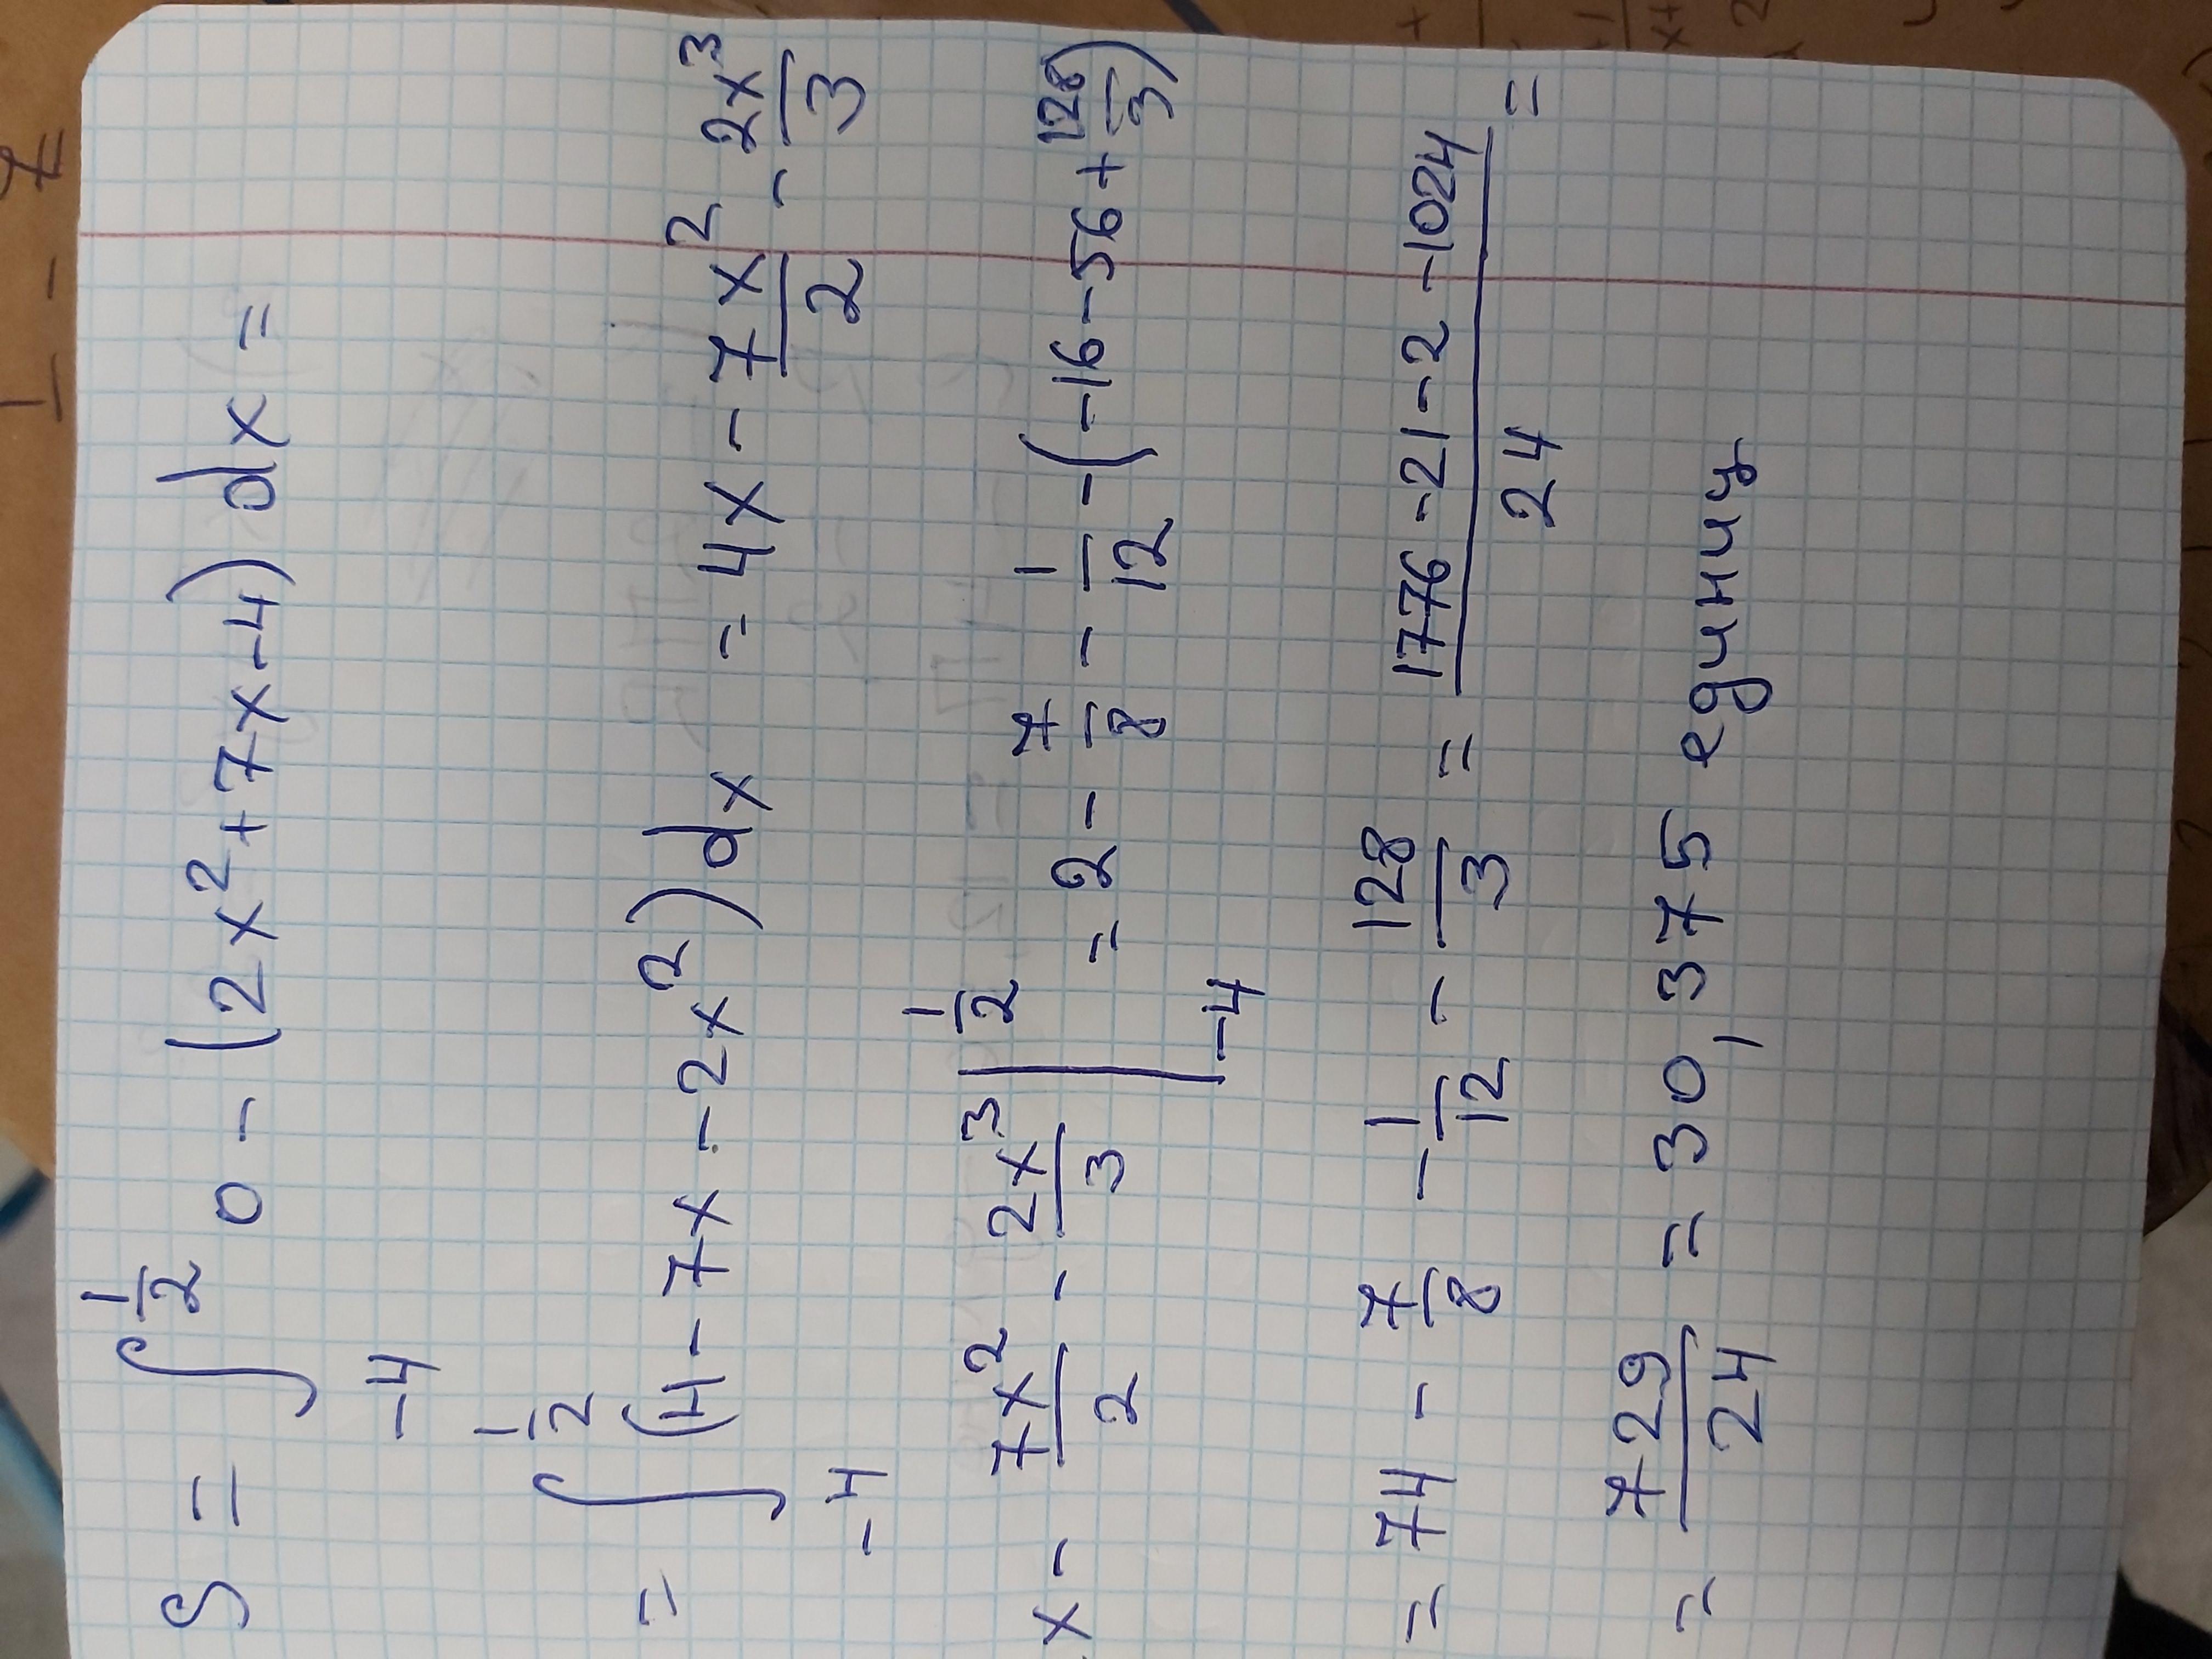 S = ∫_{-4}^{1/2} 0 - (2x² + 7x - 4) dx =
= ∫_{-4}^{1/2} (4 - 7x - 2x²) dx = 4x - 7x²/2 - 2x³/3
x - 7x²/2 - 2x³/3 |_{-4}^{1/2} = 2 - 7/8 - 1/12 - (-16 - 56 + 128/3)
= 74 - 7/8 - 1/12 - 128/3 = (1776 - 21 - 2 - 1024)/24 =
= 729/24 = 30,375 единиц